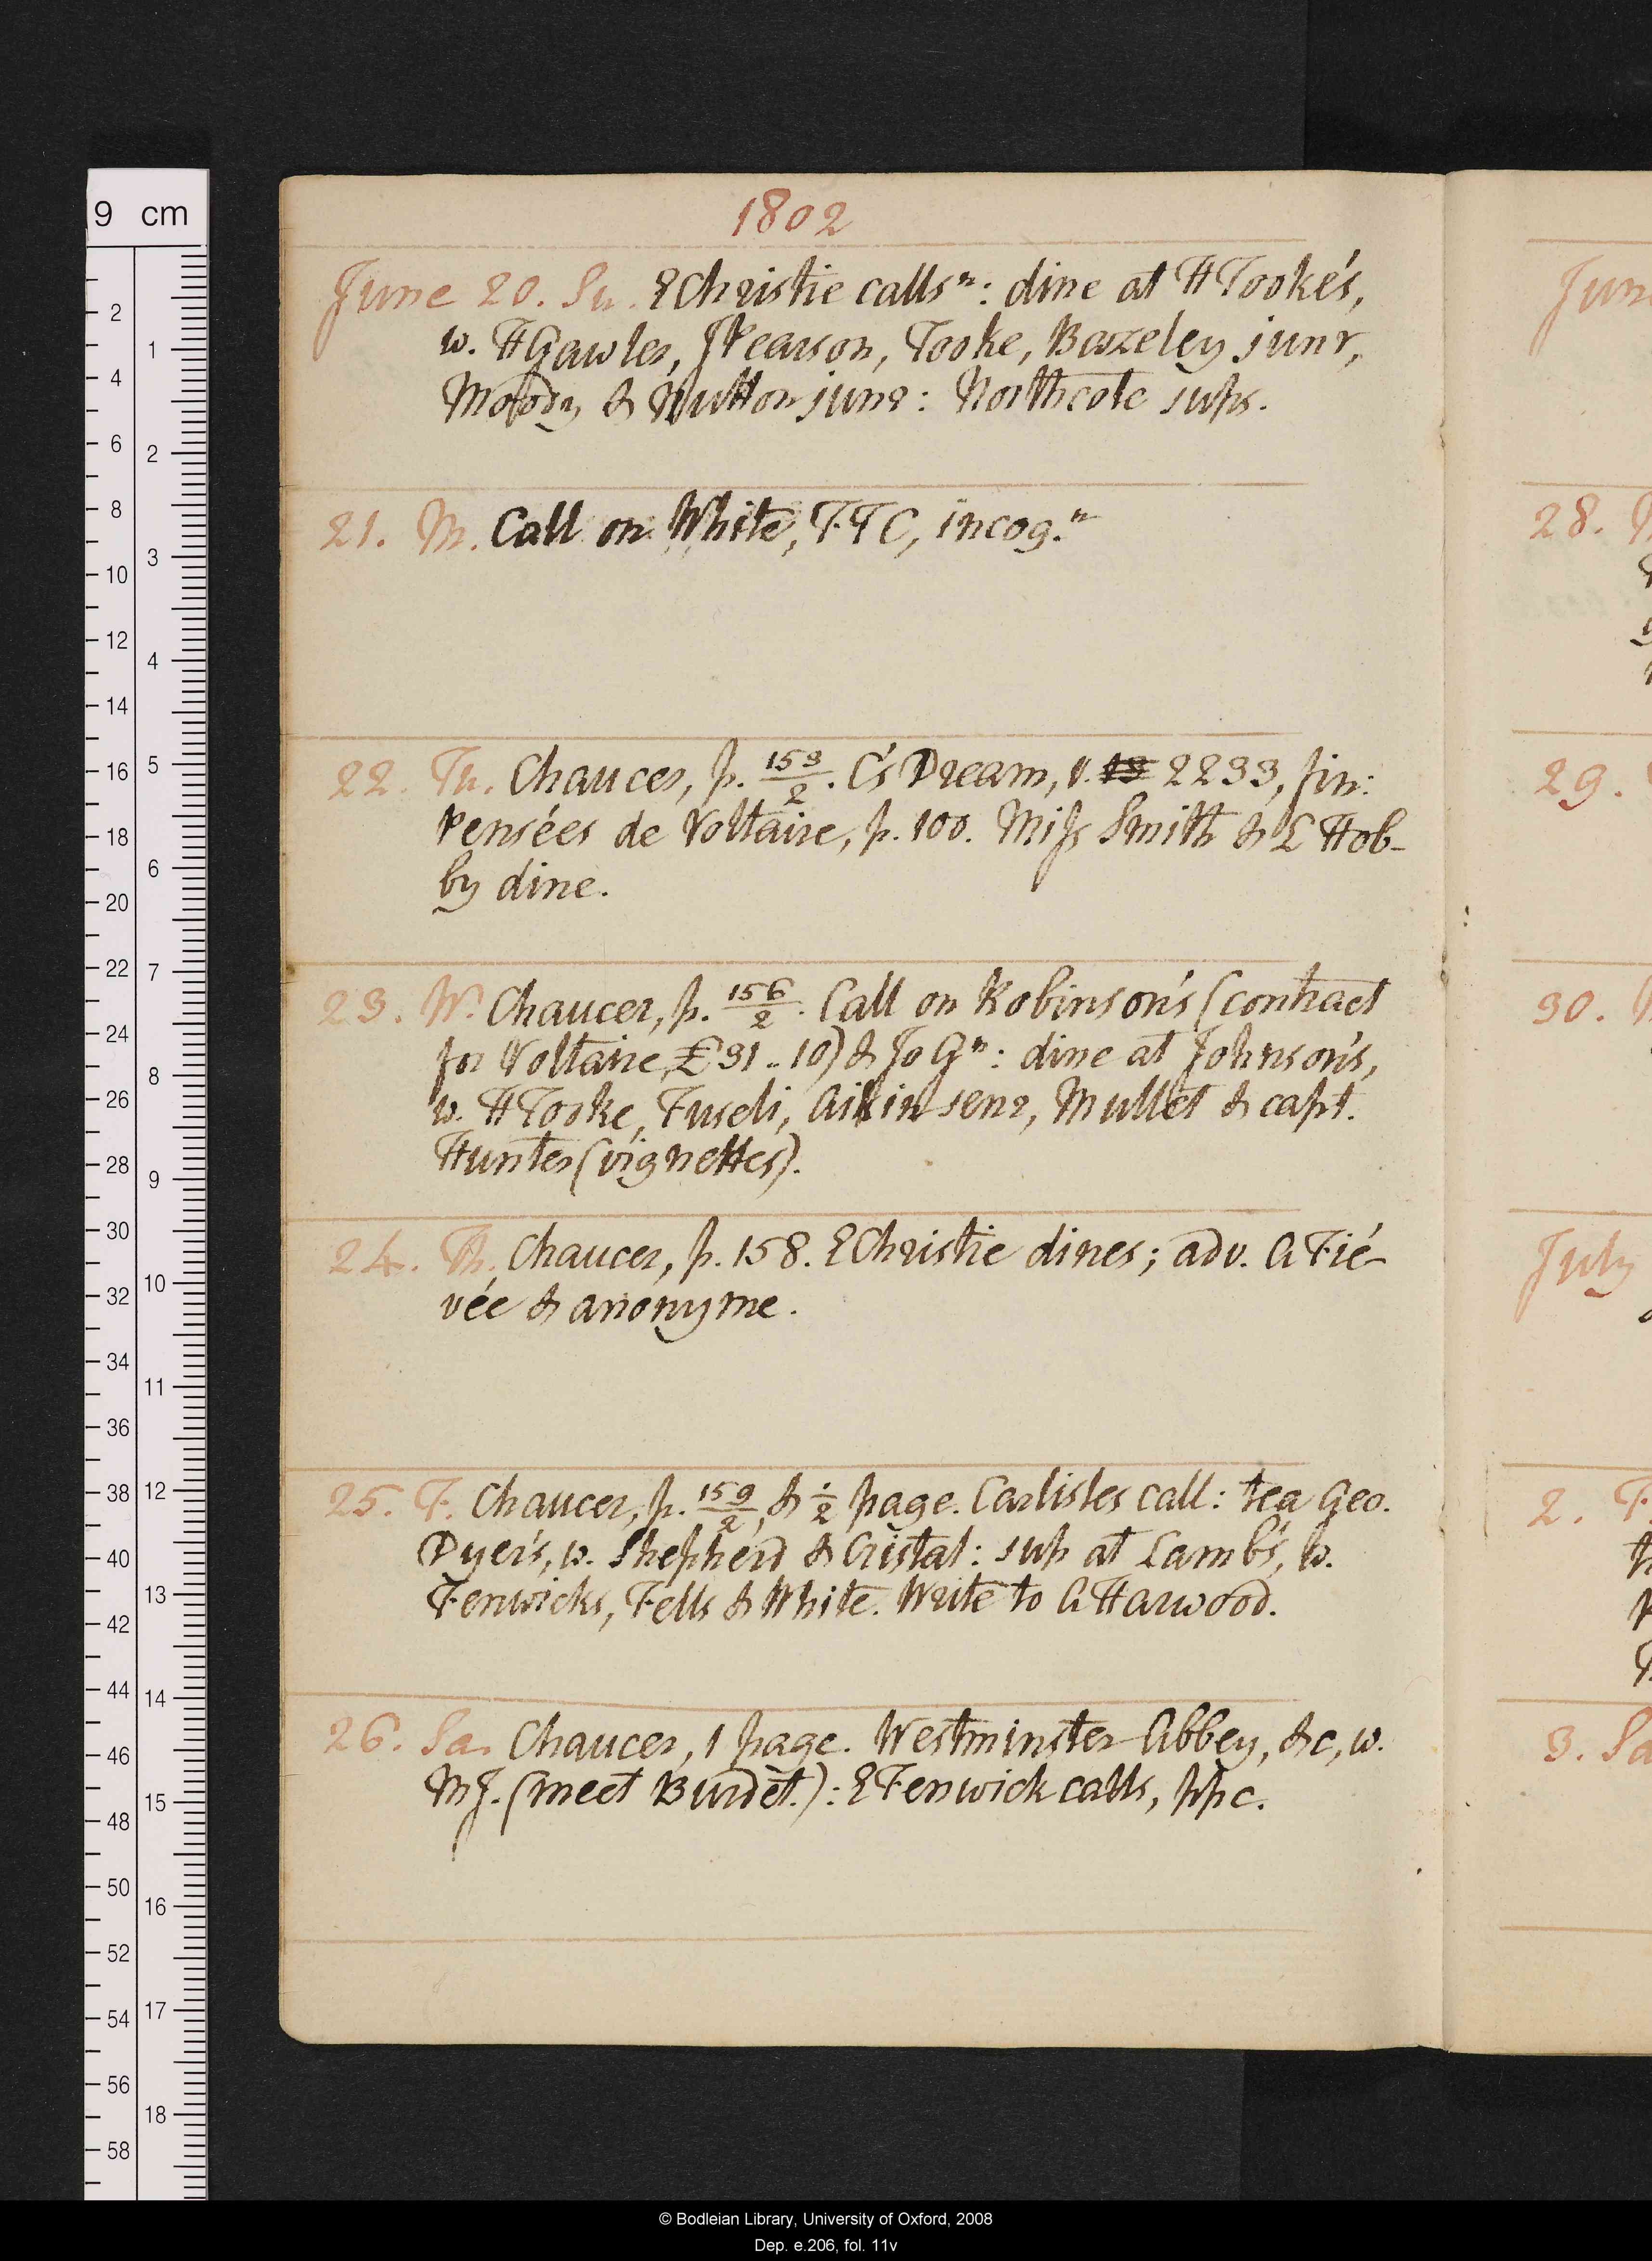 1802
June 20. Su. E Christie calls ⁿ: dine at H Tooke's,
w. H Gawler, J Pearson, Tooke, Bazeley junr,
Moody & Nutton junr: Northcote sups.
21. M. Call on White, TTC, incog. ⁿ
22. Tu. Chaucer, p. 153/2. C's Dream, v. 2233, fin:
Pensées de Voltaire, p. 100. Miss Smith & L Hob-
by dine.
23. W. Chaucer, p. 156/2. Call on Robinson's (contract
for Voltaire, £31..10) & Jo Gⁿ: dine at Johnson's,
w. H Tooke, Fuseli, Aikin senr, Mullet & capt.
Hunter (vignettes).
24. Th. Chaucer, p. 158. E Christie dines; adv. A Fié-
vée & anonyme.
25. F. Chaucer, p. 159/2, & 1/2 page. Carlisles call: tea Geo.
Dyer's, w. Shepherd & Cristal: sup at Lamb's, w.
Fenwicks, Fells & White. Write to A Harwood.
26. Sa. Chaucer, 1 page. Westminster Abbey, &c, w.
MJ. (meet Burdet.): E Fenwick calls, ppc.
June
28.
29.
30.
July
2. F
3. Sa
9 cm
2
4
6
8
10
12
14
16
18
20
22
24
26
28
30
32
34
36
38
40
42
44
46
48
50
52
54
56
58
1
2
3
4
5
6
7
8
9
10
11
12
13
14
15
16
17
18
© Bodleian Library, University of Oxford, 2008
Dep. e.206, fol. 11v